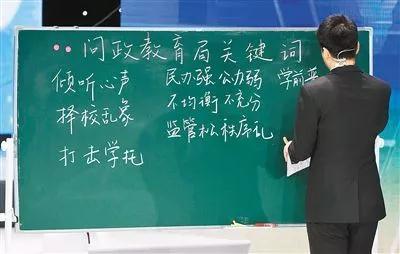 问政教育局关键词
倾听心声
择校乱象
打击学托
民办强公办弱 学前
不均衡不充分
监管松秩序乱